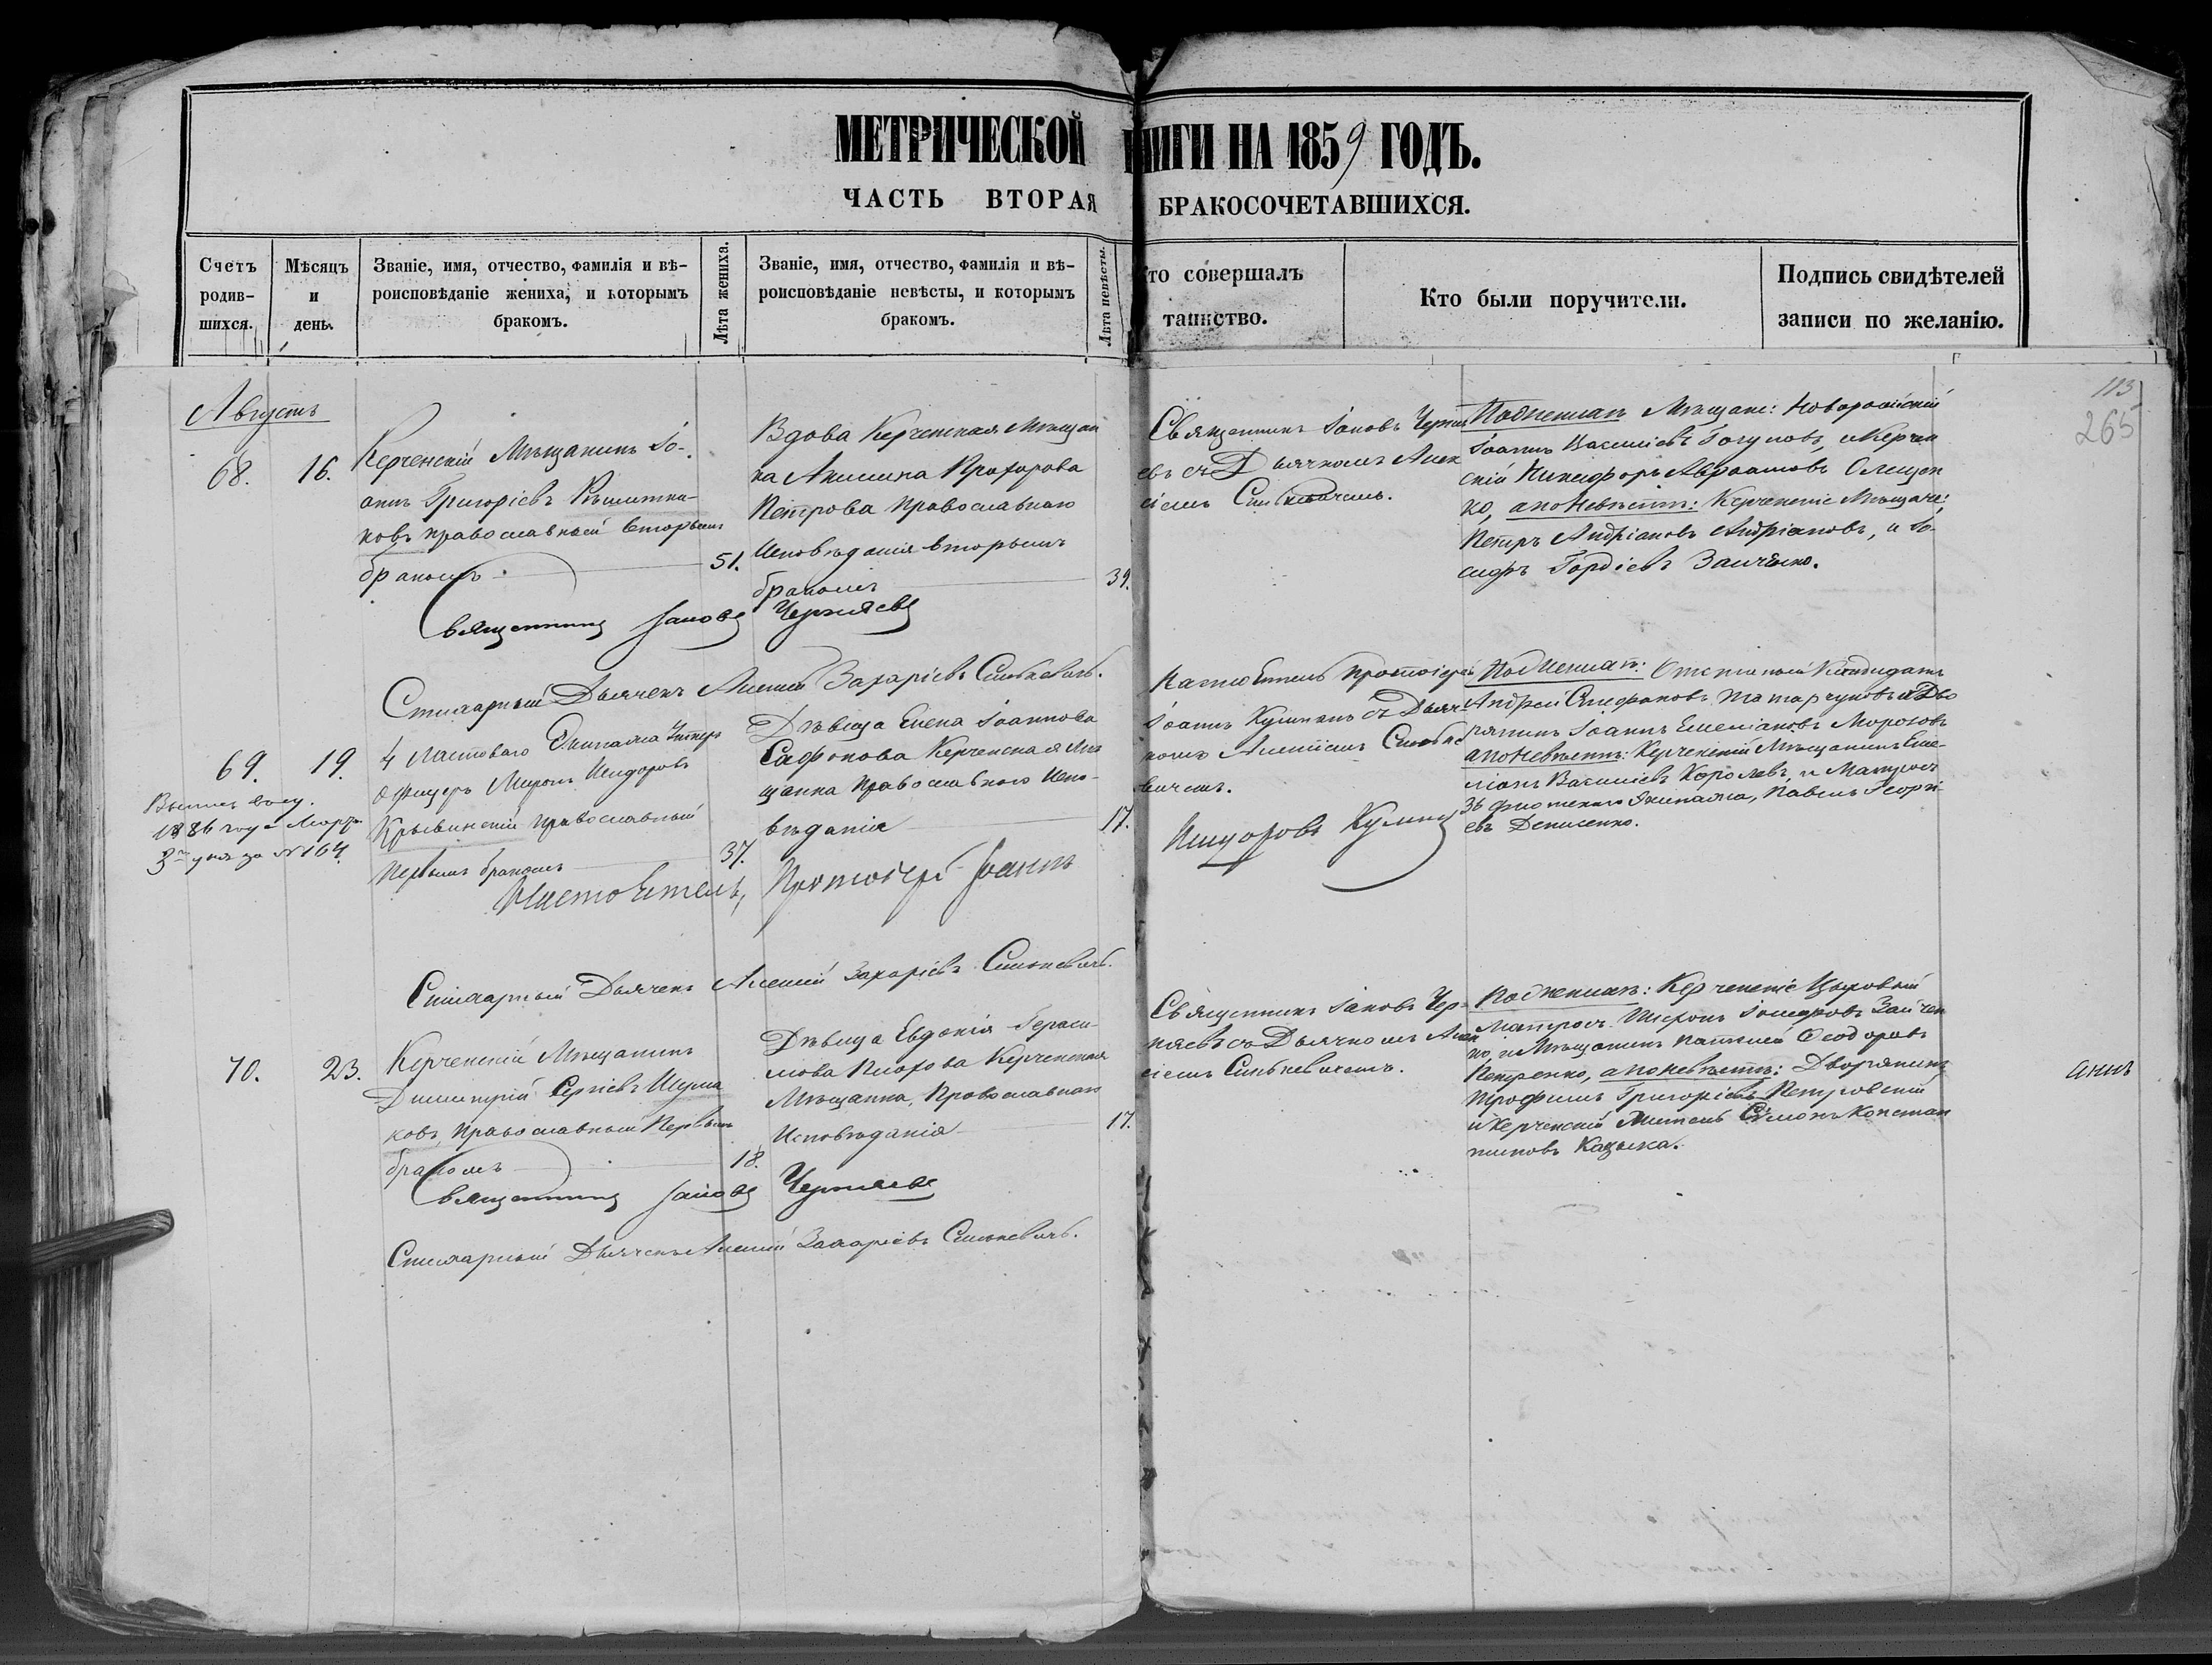 МЕТРИЧЕСКОЙ КНИГИ НА 1859 ГОДЪ.
ЧАСТЬ ВТОРАЯ БРАКОСОЧЕТАВШИХСЯ.
Счетъ родив-
шихся.
Мѣсяцъ
и
день.
Званіе, имя, отчество, фамилія и вѣ-
роисповѣданіе жениха, и которымъ
бракомъ.
Лѣта жениха.
Званіе, имя, отчество, фамилія и вѣ-
роисповѣданіе невѣсты, и которымъ
бракомъ.
Лѣта невѣсты.
то совершалъ
таинство.
Кто были поручители.
Подпись свидѣтелей
записи по желанію.
113
265
Августъ
68.
16.
Керченскій Мѣщанинъ Іо-
аннъ Григоріевъ Рѣшитни-
ковъ православный вторымъ
бракомъ
51.
Вдова Керченская Мѣщан
ка Акилина Прохорова
Петрова Православнаго
Исповѣданія вторымъ
бракомъ
39.
Священникъ Іаковъ Черня
евъ съ Дьячкомъ Алек
сіемъ Синькевичемъ.
По женихѣ Мѣщане: Новоросійскій
Іоаннъ Василіевъ Гогуновъ, и Керчен
скій Никифоръ Авраамовъ Олещен
ко, а по невѣстѣ: Керченскіе Мѣщане:
Петръ Андріановъ Андріановъ, и Іо-
сифъ Гордіевъ Заиченко.
Священникъ Іаковъ Черняевъ
Стихарный Дьячекъ Алексій Захаріевъ Синькевичъ.
69.
19.
1886 года Марта
3 дня за № 164.
4 Ластоваго Экипажа Унтеръ
офицеръ Миронъ Исидоровъ
Крывинскій православный
первымъ бракомъ
37.
Дѣвица Елена Іоаннова
Сафонова Керченская Мѣ
щанка Православнаго Испо-
вѣданія
17.
Настоятель Протоіерей
Іоаннъ Кушнинъ съ Дьяч-
комъ Алексіемъ Синьке
вичемъ.
По женихѣ: Отставной Кандидатъ
Андрей Стефановъ Татарчуковъ и Дво
рянинъ Іоаннъ Емеліановъ Морозовъ
а по невѣстѣ: Керченскій Мѣщанинъ Еме-
ліанъ Василіевъ Королевъ, и Матросъ
36 флотскаго Экипажа, Павелъ Георгі-
евъ Денисенко.
Настоятель, Протоіерей Іоаннъ
Стихарный Дьячекъ Алексій Захаріевъ Синькевичъ.
70.
23.
Керченскій Мѣщанинъ
Димитрій Сергіевъ Шума
ковъ, православный Первымъ
бракомъ
18.
Дѣвица Евдокія Гераси-
мова Пиорова Керченская
Мѣщанка, Православнаго
Исповѣданія
17.
Священникъ Іаковъ Чер-
няевъ съ Дьячкомъ Алек
сіемъ Синькевичемъ.
По женихѣ: Керченскіе Цеховый
Матросъ Миронъ Іосифовъ Зайчен
ко, и Мѣщанинъ Феодоровъ
Петренко, а по невѣстѣ: Дворянинъ
Трофимъ Григоріевъ Петровскій
и Керченскій Житель Симонъ Констан
тиновъ Кацыка.
Священникъ Іаковъ Черняевъ
Стихарный Дьячекъ Алексій Захаріевъ Синькевичъ.
аннъ